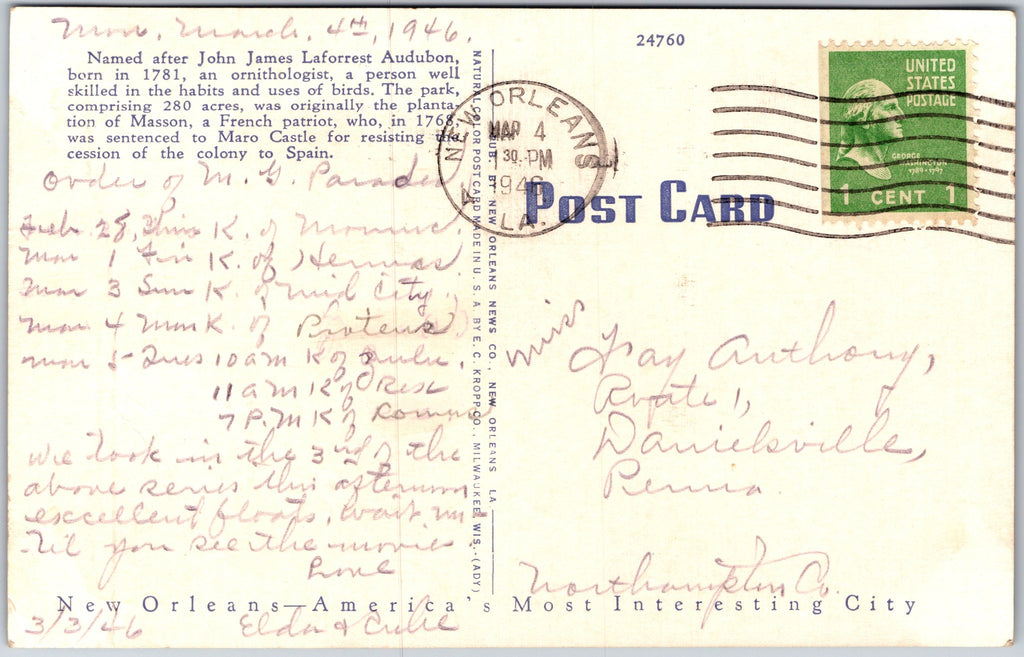 Mon, March, 4th, 1946.
Named after John James Laforrest Audubon,
born in 1781, an ornithologist, a person well
skilled in the habits and uses of birds. The park,
comprising 280 acres, was originally the planta-
tion of Masson, a French patriot, who, in 1768,
was sentenced to Maro Castle for resisting the
cession of the colony to Spain.
Order of M. G. Parades
Feb 28, Thur K. of Momus.
Mar 1 Fri K. of Hermes
Mar 3 Sun K. of Mid City.
Mar 4 Mon K. of Proteus
Mar 5 Tues 10 am K of Zulu,
11 a m K of Rex
7 P.M K of Comus
We took in the 3rd of the
above series this afternoon
excellent floats, wait un
-til you see the movie
Love
3/3/46 Elda &
NATURAL COLOR POST CARD MADE IN U. S. A. BY E. C. KROPP CO., MILWAUKEE, WIS.-(ADY)
PUB. BY NEW ORLEANS NEWS CO., NEW ORLEANS, LA.
24760
NEW ORLEANS
MAR 4
1 30 PM
1946
LA.
UNITED
STATES
POSTAGE
GEORGE
WASHINGTON
1789-1797
1 CENT 1
POST CARD
Miss Fay Anthony,
Route 1,
Danielsville,
Penna.
Northampton Co.
New Orleans—America's Most Interesting City